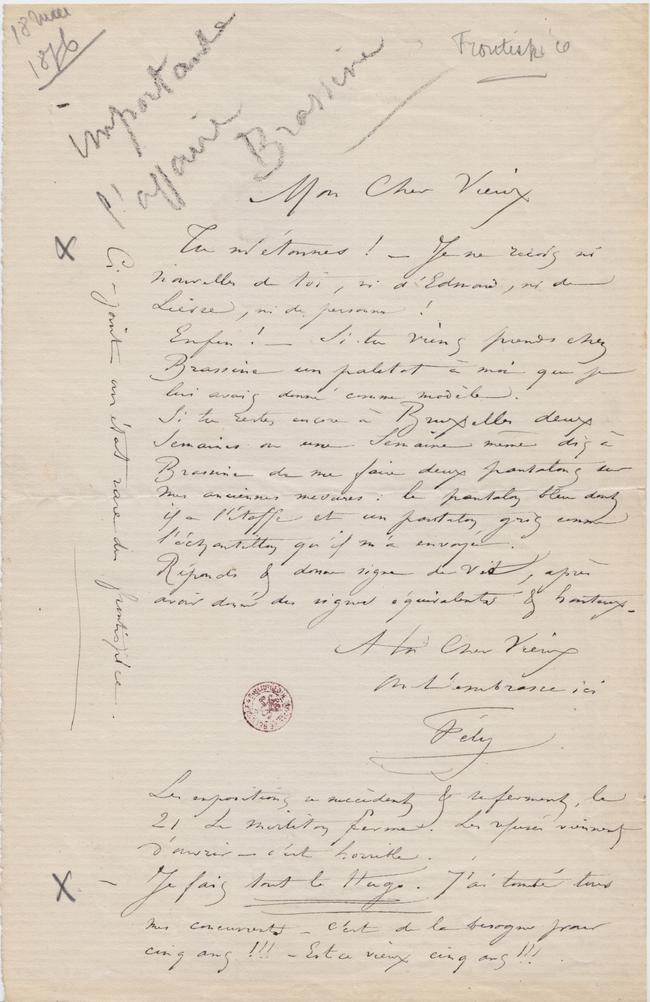 18 Mai
1876
Frontispice
importante
l'affaire
Brassine
Mon Cher Vieux
Tu m'étonnes ! – Je ne reçois ni
nouvelles de toi, ni d'Edmond, ni de
Liesse, ni de personne !
Enfin ! – Si tu viens prends chez
Brassine un paletot à moi que je
lui avais donné comme modèle.
Si tu restes encore à Bruxelles deux
semaines ou une semaine même dis à
Brassine de me faire deux pantalons sur
mes anciennes mesures : le pantalon bleu dont
il a l'étoffe et un pantalon gris comme
l'échantillon qu'il m'a envoyé.
Réponds & donne signe de vit, après
avoir donné des signes équivalents & honteux.
A toi Cher Vieux
on t'embrasse ici
Fély
Ci-joint un état rare du frontispice.
Les expositions se succèdent & se ferment, le
21 le mirliton ferme. Les refusés viennent
d'ouvrir – c'est horrible.
X – Je fais tout le Hugo. J'ai tombé tous
mes concurrents – c'est de la besogne pour
cinq ans !!! – Est ce vieux cinq ans !!!
X